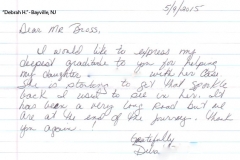 "Debrah H." - Bayville, NJ
5/9/2015
Dear Mr Bross,
I would like to express my
deepest gratitude to you for helping
my daughter with her case
She is starting to get that sparkle
back I used to see in her. It
has been a very long road but we
are at the end of the journey. Thank
you again,
Gratefully,